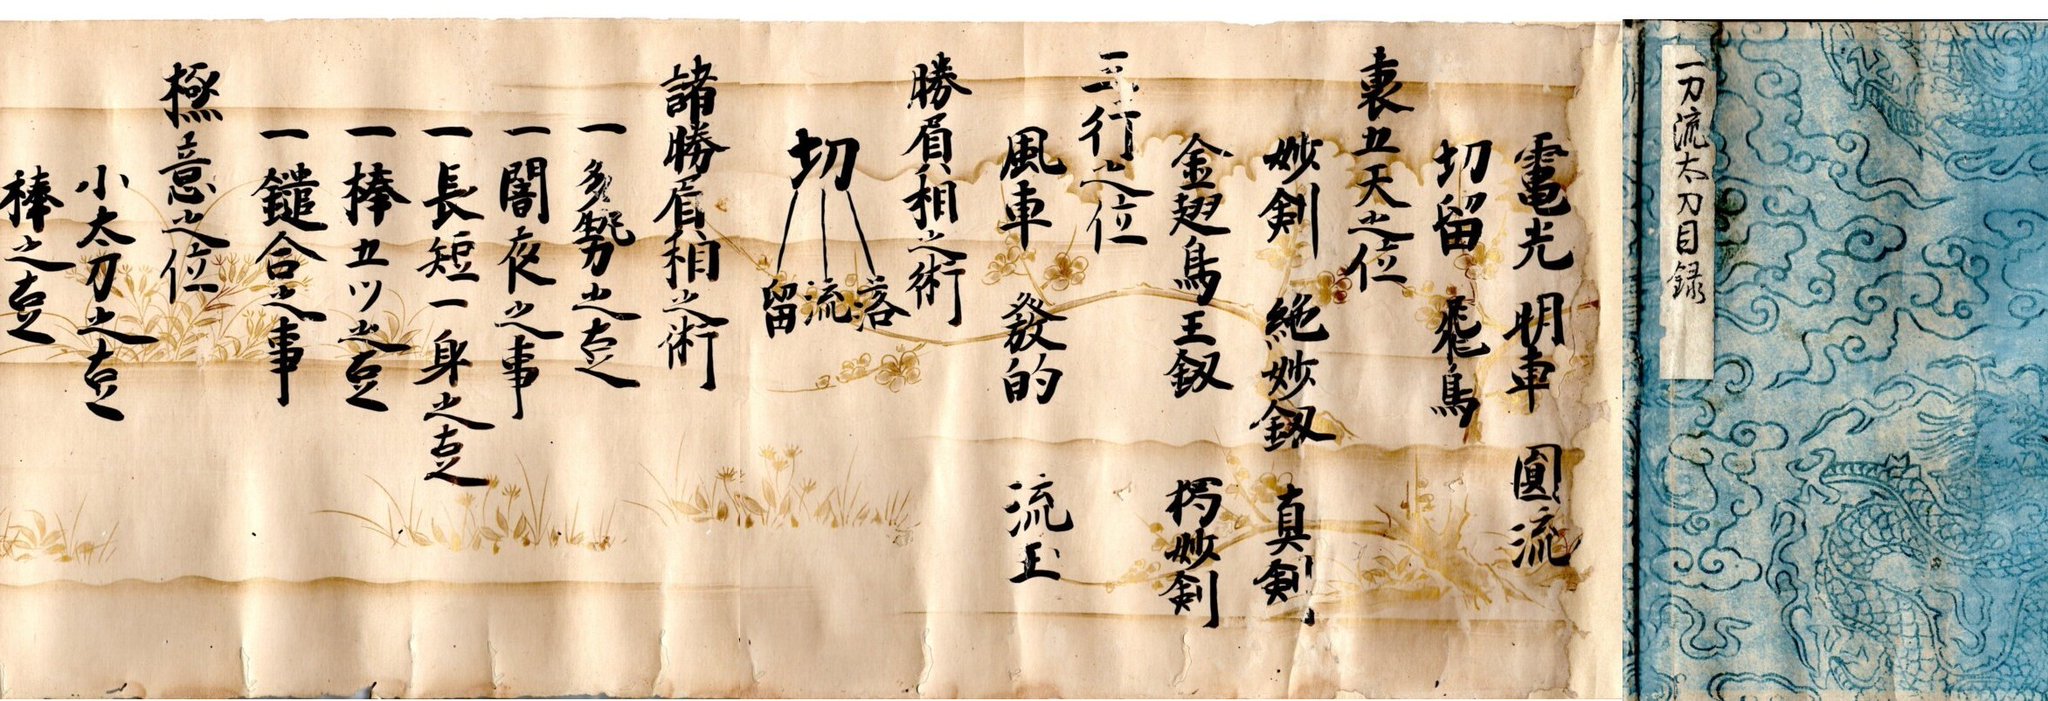 一刀流太刀目録
電光 明車 圓流
切留 飛鳥
裏五天之位
妙剣 絶妙釼 真剣
金翅鳥王釼 独妙剣
三行之位
風車 發的 流玉
勝眉相之術
切
落
流
留
諸勝眉相之術
一多勢之事
一闇夜之事
一長短一身之事
一棒五ツ之事
一鑓合之事
極意之位
小太刀之事
棒之事